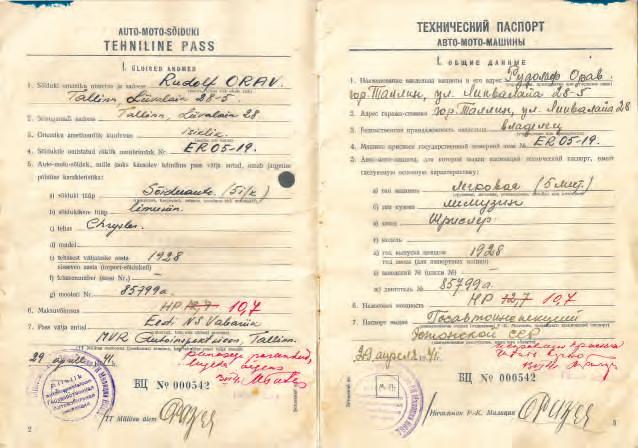 AUTO-MOTO-SÕIDUKI
TEHNILINE PASS
I. ÜLDISED ANDMED
1. Sõiduki omaniku nimetus ja aadress Rudolf ORAV.
Tallinn, Liivalaia 28-5
2. aadress Tallinn, Liivalaia 28
3. Omaniku ametkondlik kuuluvus isiklik.
4. Sõidukile omistatud riiklik numbrimärk Nr. ER 05-19.
5. Auto-moto-sõiduk, mille jaoks käesolev tehniline pass välja antud, omab järgmise
põhilise karakteristika:
a) sõiduki tüüp Sõiduauto (5 ist.)
b) sõidukikere tüüp limusiin.
c) tehas Chrysler.
d) mudel
e) tehasest väljalaske aasta 1928
sisseveo aasta (import-sõidukeil)
f) tehasenumber (šassi Nr.) —
g) mootori Nr. 85799a.
6. Maksuvõimsus HP 12,7 10,7
7. Pass välja antud Eesti NS Vabariik
MVR Autoinspektsioon Tallinn.
29 aprill 41.
punasega parandud,
õigus
ВЦ № 000542
TT Miilitsa ülem
2
ТЕХНИЧЕСКИЙ ПАСПОРТ
АВТО-МОТО-МАШИНЫ
I. ОБЩИЕ ДАННЫЕ
1. Наименование владельца машины и его адрес Рудольф Орав.
гор. Таллин, ул. Лийвалайа 28-5
2. Адрес гаража-стоянки гор. Таллин, ул. Лийвалайа 28
3. Ведомственная принадлежность владельца владелец
4. Машине присвоен государственный номерной знак № ER 05-19.
5. Авто-мото-машина, для которой выдан настоящий технический паспорт, имеет
следующую основную характеристику:
а) тип машины легковая (5 мест.)
б) тип кузова лимузин
в) завод Шрислер.
г) модель
д) год выпуска заводом 1928
год ввоза (для импортных машин)
е) заводской № (шасси №) —
ж) двигатель № 85799a.
6. Налоговая мощность HP 12,7 10,7
7. Паспорт выдан Госавтоинспекцией
Эстонской ССР
29 апреля 41.
ВЦ № 000542
Начальник Р.-К. Милиции
3